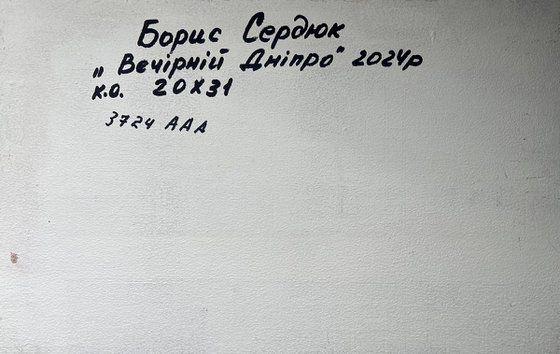 Борис Сердюк
„Вечірній Дніпро" 2024р
к.о. 20х31
3724 ААА